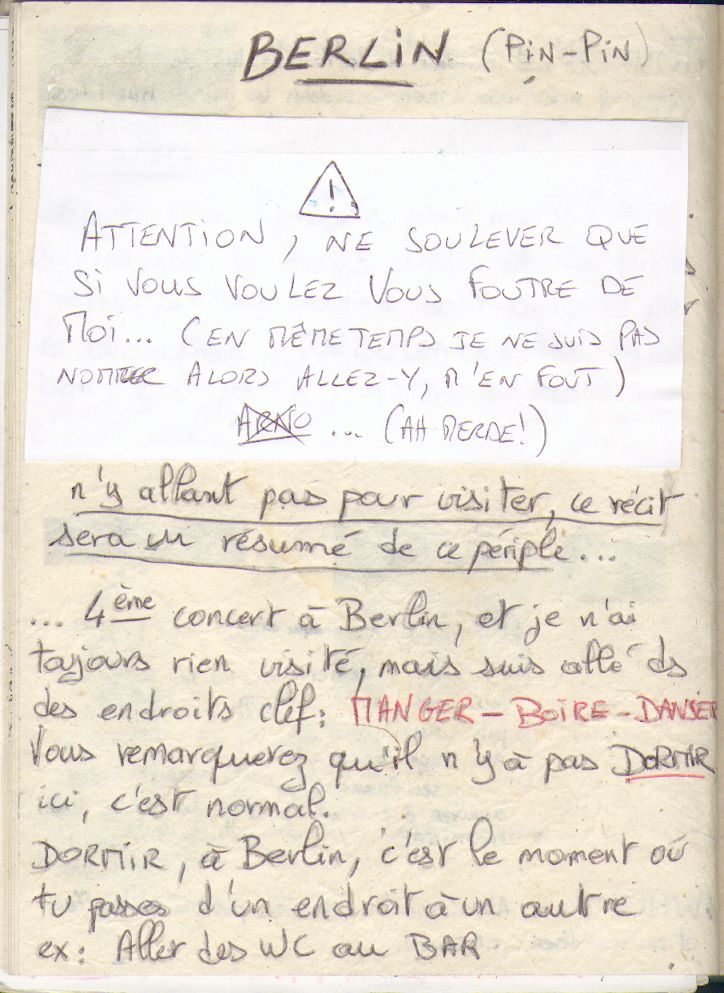 BERLIN (PIN-PIN)
!
ATTENTION, NE SOULEVER QUE
SI VOUS VOULEZ VOUS FOUTRE DE
MOI... (EN MÊME TEMPS JE NE SUIS PAS
NOMMER ALORS ALLEZ-Y, M'EN FOUT)
ARNO ... (AH MERDE!)
n'y allant pas pour visiter, ce récit
sera un résumé de ce périple...
... 4ème concert à Berlin, et je n'ai
toujours rien visité, mais suis allé ds
des endroits clef: MANGER - BOIRE - DANSER
Vous remarquerez qu'il n'y à pas DORMIR
ici, c'est normal.
DORMIR, à Berlin, c'est le moment où
tu passes d'un endroit à un autre
ex: Aller des WC au BAR